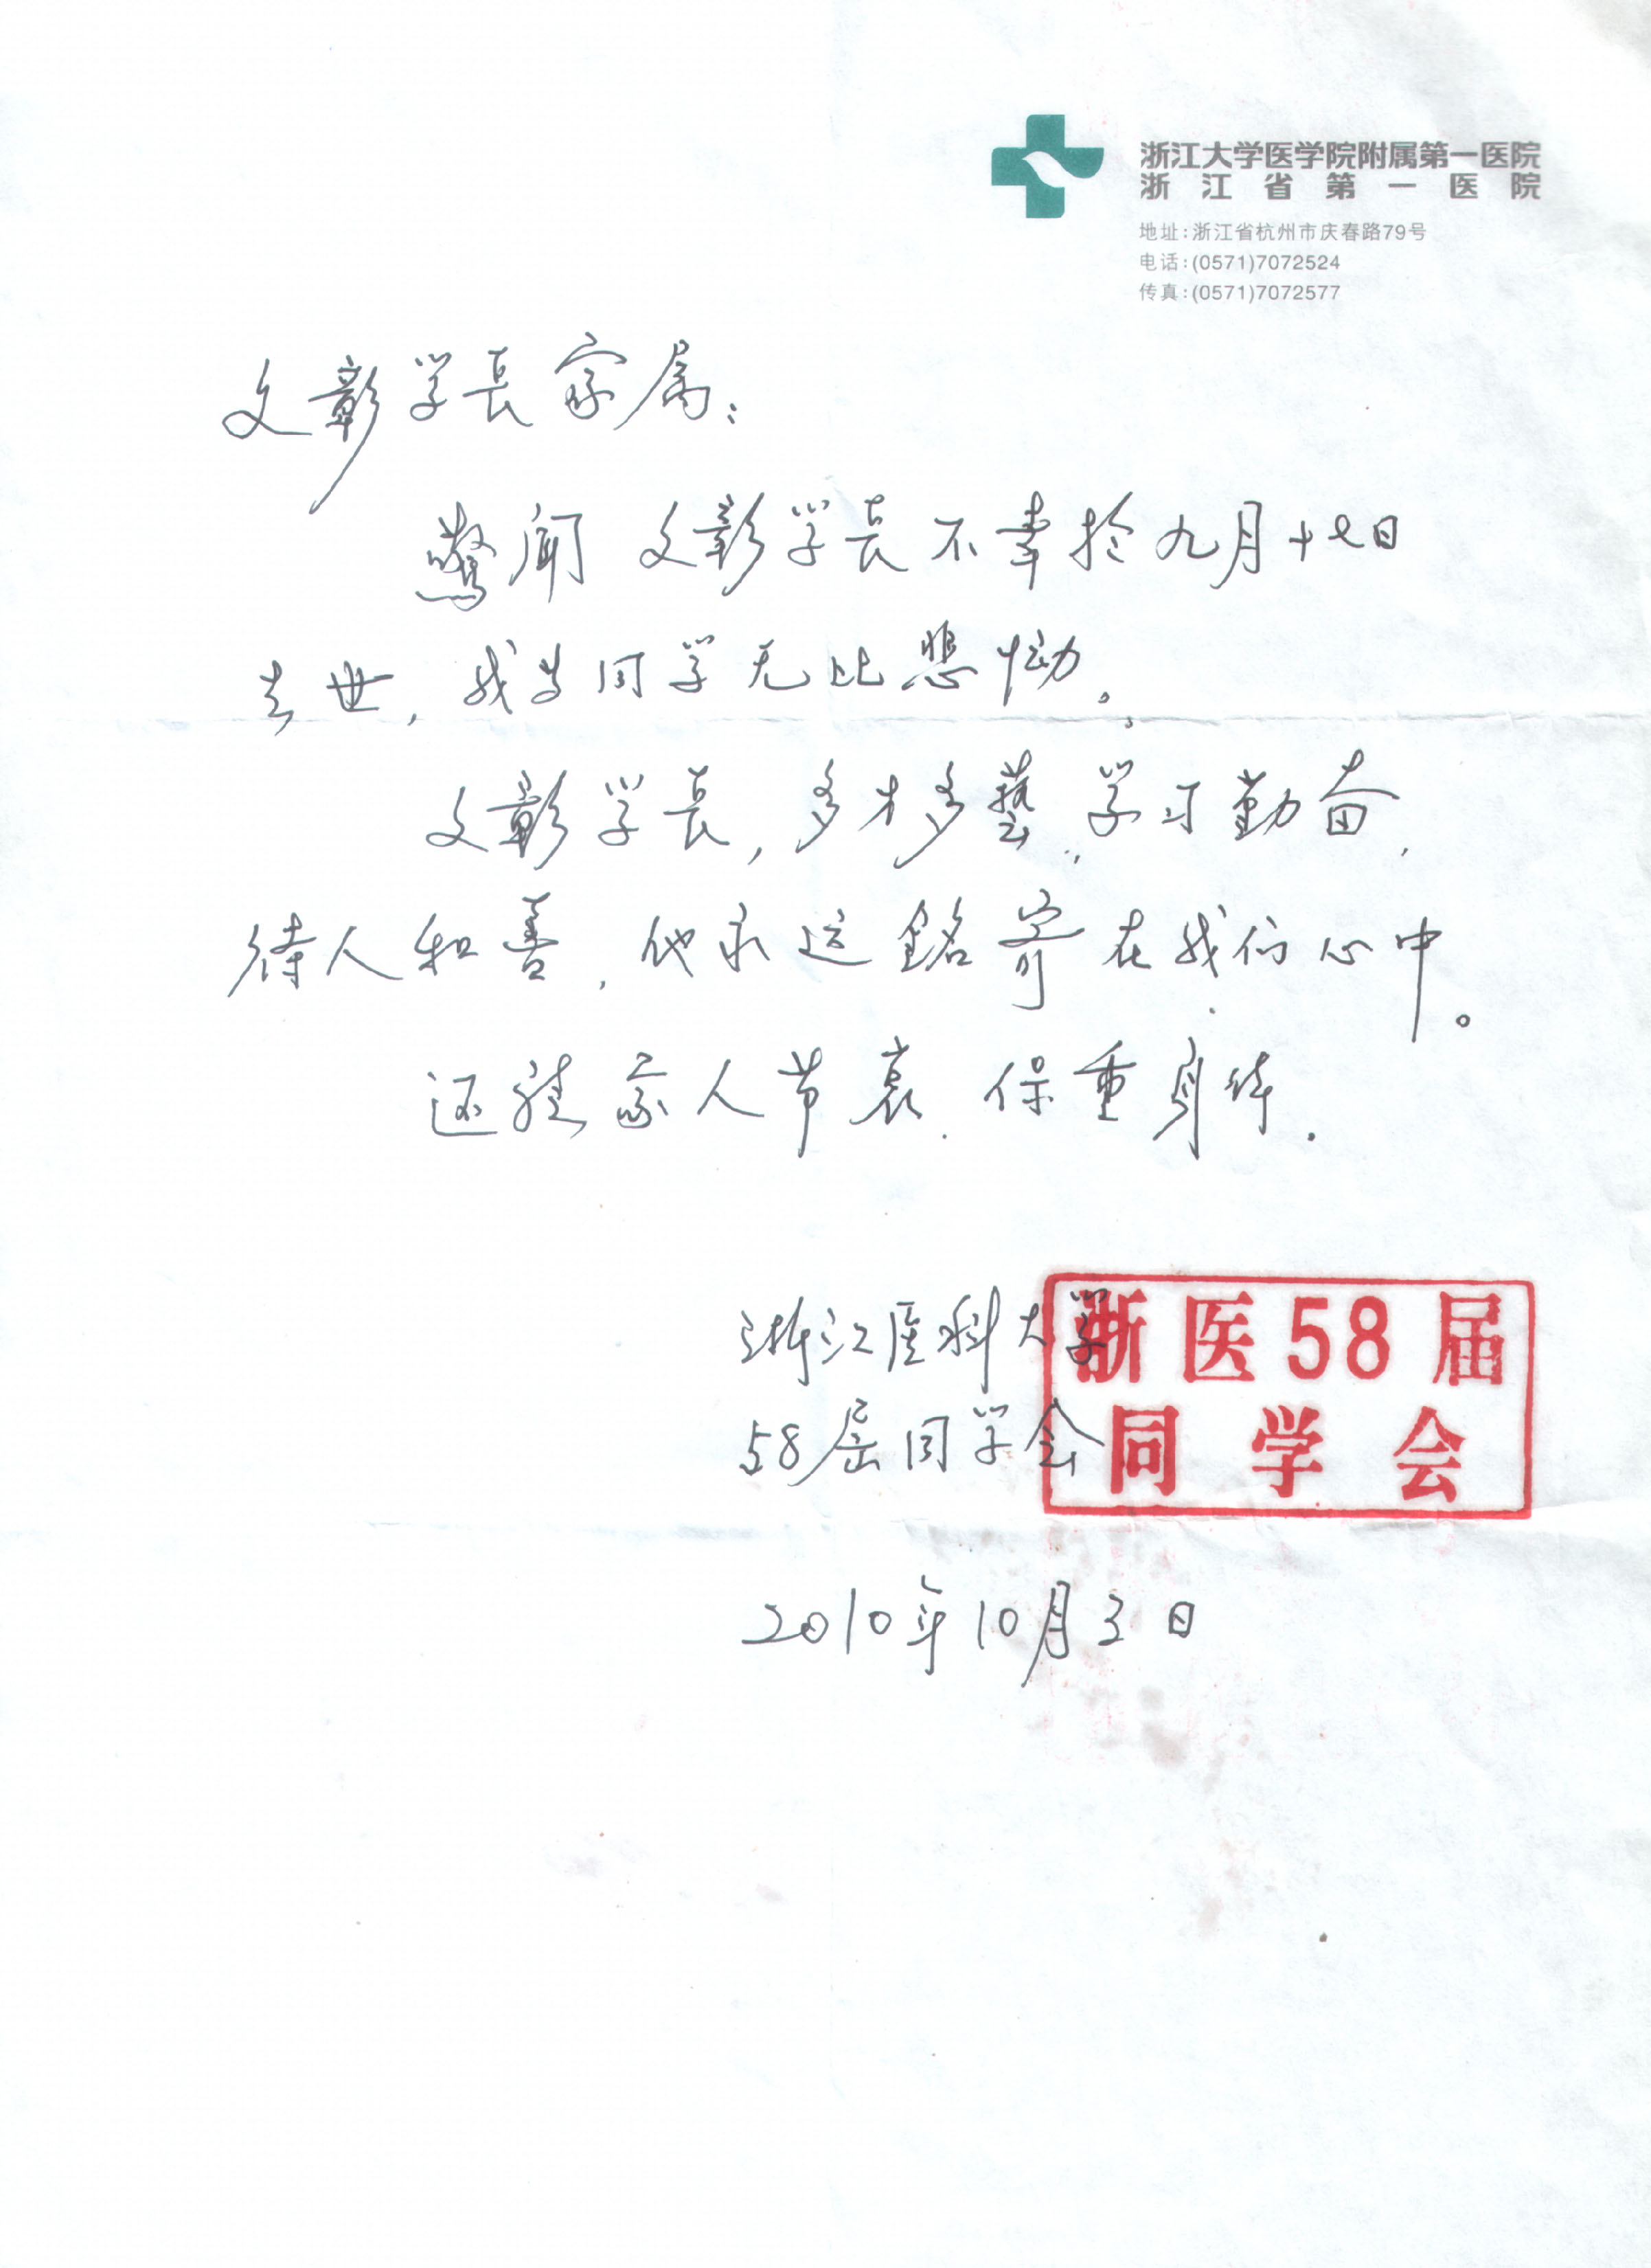 浙江大学医学院附属第一医院
浙江省第一医院
地址:浙江省杭州市庆春路79号
电话:(0571)7072524
传真:(0571)7072577
文彰学長家属:
驚闻 文彰学長不幸於九月十七日
去世,我等同学无比悲恸。
文彰学長,多才多藝,学习勤奋,
待人和善,他永远銘寄在我们心中。
还望家人节哀.保重身体.
浙江医科大学
58届同学会
浙医58届
同学会
2010年10月3日